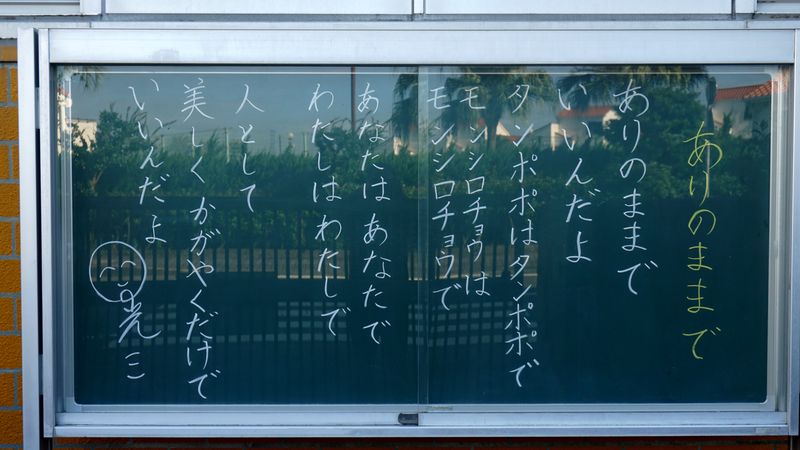 ありのままで
ありのままで
いいんだよ
タンポポはタンポポで
モンシロチョウは
モンシロチョウで
あなたは あなたで
わたしは わたしで
人として
美しくかがやくだけで
いいんだよ